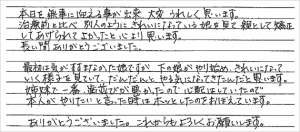 本日を無事に迎える事が出来、大変うれしく思います。
治療前と比べ別人のようにきれいになっている娘を見て親として矯正
してあげられてよかったと心より思います。
長い間ありがとうございました。
最初は気がすすまなかった娘ですが下の娘がやり始め、きれいになって
いく様子を見ていて、だんだんとやる気になってきたんだと思います。
姉妹で一番、歯並びが悪かったので心配はしていたので
本人がやりたいと言った時はホッとしたのをおぼえています。
ありがとうございました。これからもよろしくお願いします。